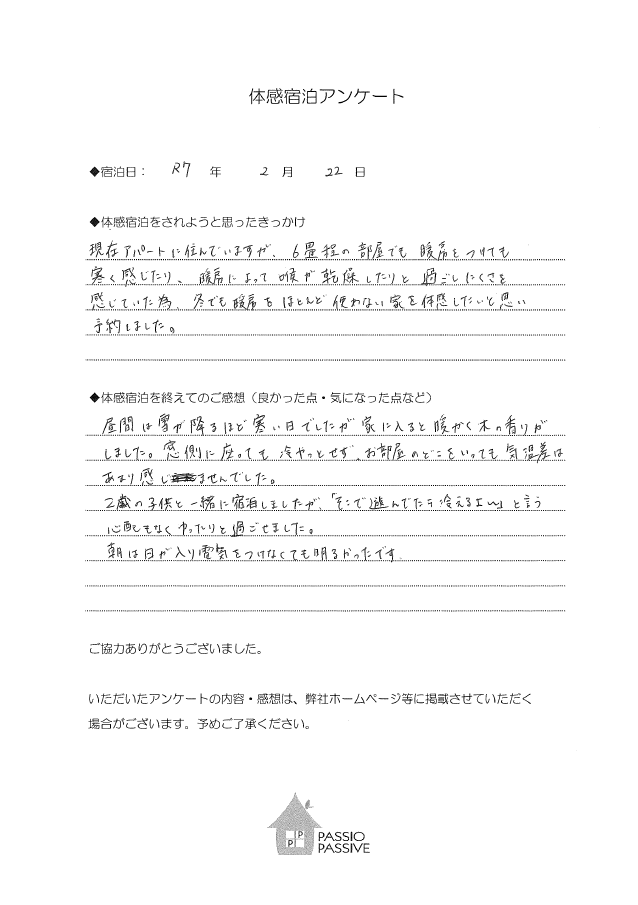 体感宿泊アンケート
◆宿泊日： R7 年 2 月 22 日
◆体感宿泊をされようと思ったきっかけ
現在アパートに住んでいますが、6畳程の部屋でも暖房をつけても
寒く感じたり、暖房によって喉が乾燥したりと過ごしにくさを
感じていた為、冬でも暖房をほとんど使わない家を体感したいと思い
予約しました。
◆体感宿泊を終えてのご感想（良かった点・気になった点など）
昼間は雪が降るほど寒い日でしたが家に入ると暖かく木の香りが
しました。窓側に座っても冷やっとせず、お部屋のどこをいっても気温差は
あまり感じませんでした。
2歳の子供と一緒に宿泊しましたが、「そこで遊んでたら冷えるよ〜」と言う
心配もなくゆったりと過ごせました。
朝は日が入り電気をつけなくても明るかったです.
ご協力ありがとうございました。
いただいたアンケートの内容・感想は、弊社ホームページ等に掲載させていただく
場合がございます。予めご了承ください。
P
P
PASSIO
PASSIVE